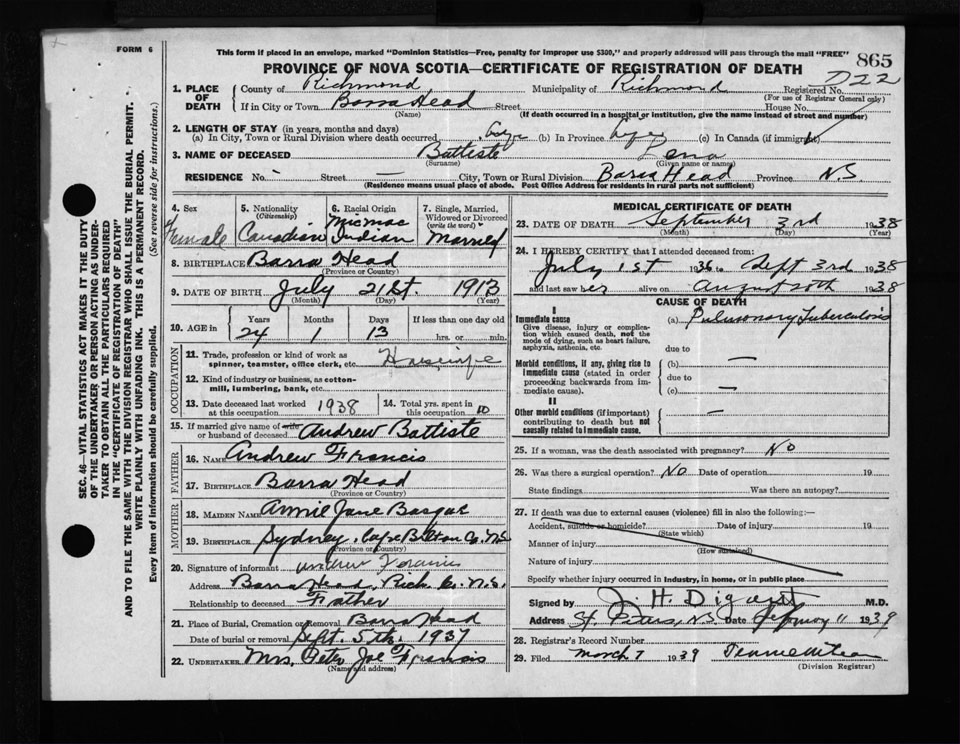 FORM 6
This form if placed in an envelope, marked "Dominion Statistics—Free, penalty for improper use $300," and properly addressed will pass through the mail "FREE"
865
PROVINCE OF NOVA SCOTIA—CERTIFICATE OF REGISTRATION OF DEATH
722
1. PLACE OF DEATH County of Richmond Municipality of Richmond Registered No.
(For use of Registrar General only)
If in City or Town Barra Head Street House No.
(Name) (If death occurred in a hospital or institution, give the name instead of street and number)
2. LENGTH OF STAY (in years, months and days)
(a) In City, Town or Rural Division where death occurred (b) In Province (c) In Canada (if immigrant)
3. NAME OF DECEASED Battiste Lena
(Surname) (Given name or names)
RESIDENCE No. - Street — City, Town or Rural Division Barra Head Province NS
(Residence means usual place of abode. Post Office Address for residents in rural parts not sufficient)
4. Sex Female
5. Nationality (Citizenship) Canadian
6. Racial Origin Micmac Indian
7. Single, Married, Widowed or Divorced (write the word) Married
8. BIRTHPLACE Barra Head
(Province or Country)
9. DATE OF BIRTH July 21st. 1913
(Month) (Day) (Year)
10. AGE in Years Months Days If less than one day old
24 1 13 hrs. or min.
OCCUPATION
11. Trade, profession or kind of work as spinner, teamster, office clerk, etc. Housewife
12. Kind of industry or business, as cotton-mill, lumbering, bank, etc.
13. Date deceased last worked at this occupation 1938
14. Total yrs. spent in this occupation 10
15. If married give name of wife or husband of deceased Andrew Battiste
FATHER
16. NAME Andrew Francis
17. BIRTHPLACE Barra Head
(Province or Country)
MOTHER
18. MAIDEN NAME Annie Jane
19. BIRTHPLACE Sydney, Cape Breton Co. N.S.
(Province or Country)
20. Signature of informant Andrew Francis
Address Barra Head, Rich. Co. N.S.
Relationship to deceased Father
21. Place of Burial, Cremation or Removal Barra Head
Date of burial or removal Sept. 5th. 1937
22. UNDERTAKER Mrs. Peter Joe Francis
(Name and address)
MEDICAL CERTIFICATE OF DEATH
23. DATE OF DEATH September 3rd 1938
(Month) (Day) (Year)
24. I HEREBY CERTIFY that I attended deceased from:
July 1st 1936 to Sept 3rd 1938
and last saw her alive on August 20th 1938
CAUSE OF DEATH
I
Immediate cause (a) Pulmonary Tuberculosis
Give disease, injury or complication which caused death, not the mode of dying, such as heart failure, asphyxia, asthenia, etc.
due to
Morbid conditions, if any, giving rise to immediate cause (stated in order proceeding backwards from immediate cause).
(b) —
due to
(c) —
II
Other morbid conditions (if important) contributing to death but not causally related to immediate cause. —
25. If a woman, was the death associated with pregnancy? No
26. Was there a surgical operation? No Date of operation 19
State findings Was there an autopsy?
27. If death was due to external causes (violence) fill in also the following:—
Accident, suicide or homicide? Date of injury 19
(State which)
Manner of injury
(How sustained)
Nature of injury
Specify whether injury occurred in industry, in home, or in public place
Signed by H. Digout M.D.
Address St. Peters, N.S. Date 11 1939
28. Registrar's Record Number
29. Filed March 7 1939
(Division Registrar)
SEC. 46—VITAL STATISTICS ACT MAKES IT THE DUTY
OF THE UNDERTAKER OR PERSON ACTING AS UNDER-
TAKER TO OBTAIN ALL THE PARTICULARS REQUIRED
IN THE "CERTIFICATE OF REGISTRATION OF DEATH"
AND TO FILE THE SAME WITH THE DIVISION REGISTRAR WHO SHALL ISSUE THE BURIAL PERMIT.
WRITE PLAINLY WITH UNFADING INK. THIS IS A PERMANENT RECORD.
Every item of information should be carefully supplied. (See reverse side for instructions.)